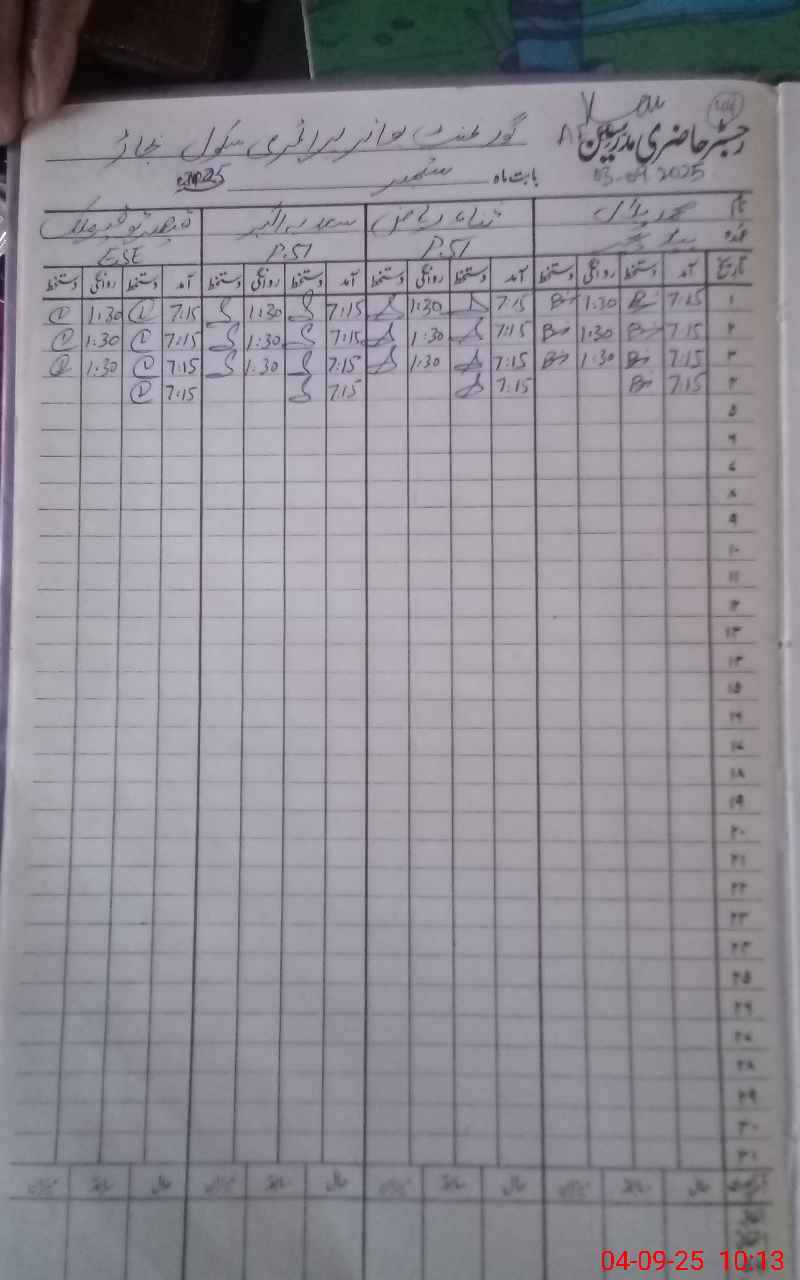 رجسٹر حاضری مدرسین
03-09-2025
گورنمنٹ بوائز پرائمری سکول
بابت ماہ ستمبر 2025
نام محمد بلال ثناء ریاض سعدیہ اکبر
عہدہ P.ST P.ST ESE
تاریخ آمد دستخط روانگی دستخط آمد دستخط روانگی دستخط آمد دستخط روانگی دستخط آمد دستخط روانگی دستخط
۱ 7:15 1:30 7:15 1:30 7:15 1:30 7:15 1:30
۲ 7:15 1:30 7:15 1:30 7:15 1:30 7:15 1:30
۳ 7:15 1:30 7:15 1:30 7:15 1:30 7:15 1:30
۴ 7:15 7:15 7:15 7:15
۵
۶
۷
۸
۹
۱۰
۱۱
۱۲
۱۳
۱۴
۱۵
۱۶
۱۷
۱۸
۱۹
۲۰
۲۱
۲۲
۲۳
۲۴
۲۵
۲۶
۲۷
۲۸
۲۹
۳۰
۳۱
حال سابقہ میزان حال سابقہ میزان حال سابقہ میزان حال سابقہ میزان
04-09-25 10:13